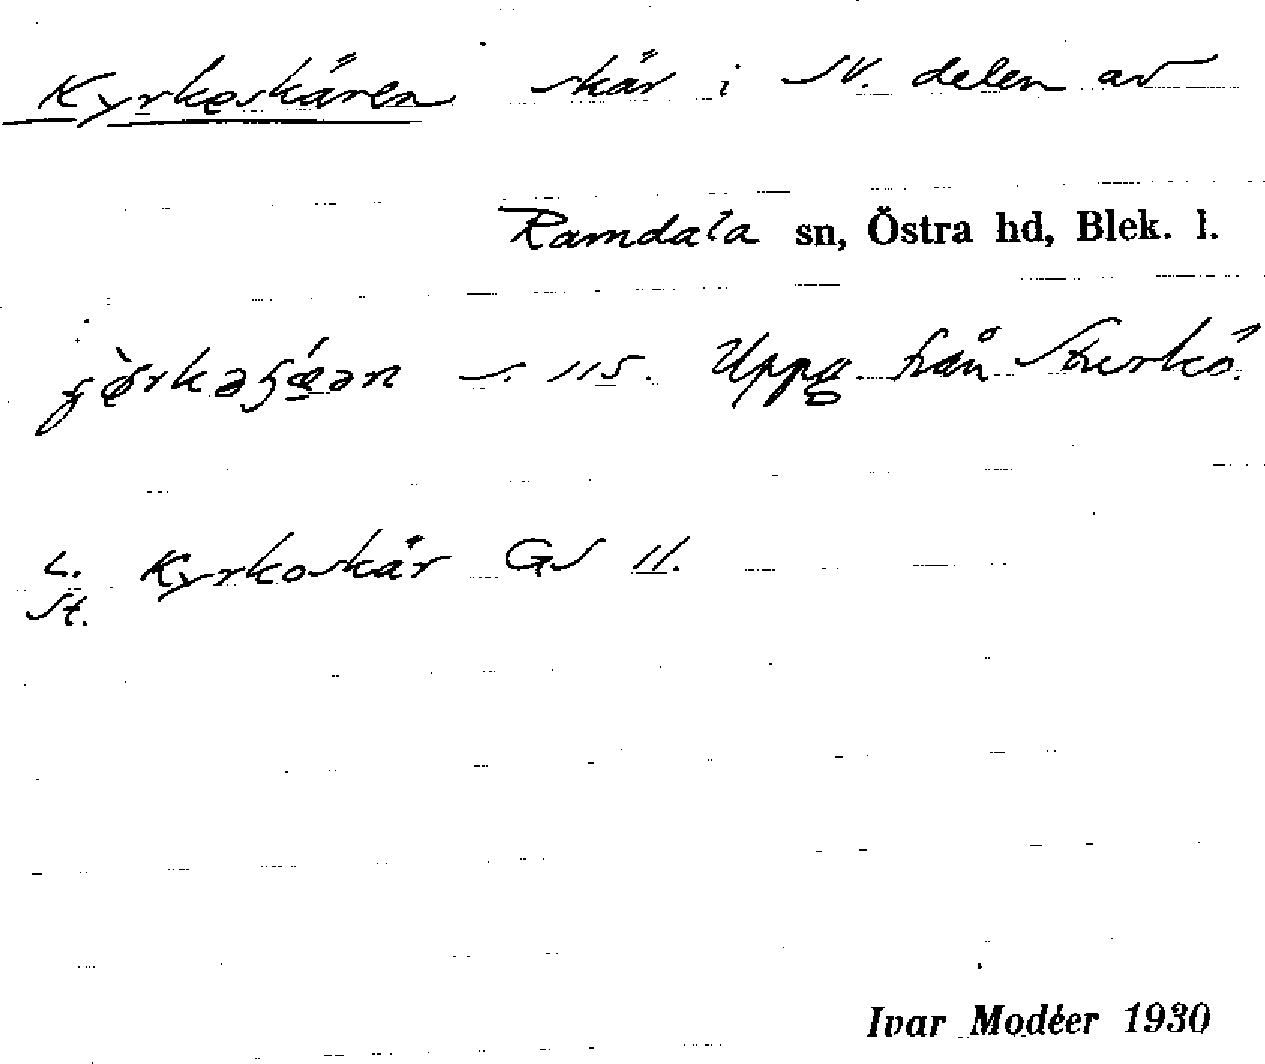 Kyrkeskären skär i SV. delen av
Ramdala sn, Östra hd, Blek. l.
s. 115. Uppg från Sturkö.
L. Kyrkoskär GS 11.
St.
Ivar Modéer 1930